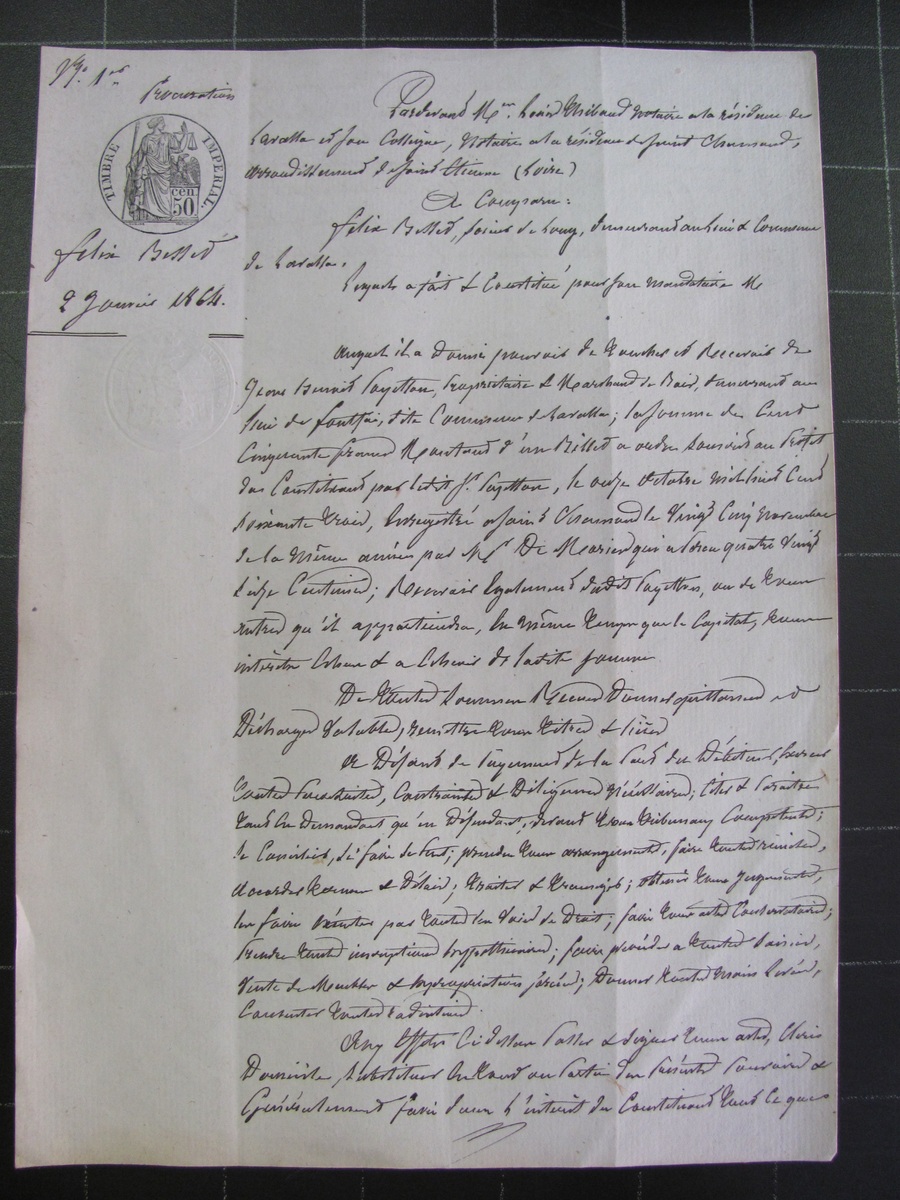 N° 1er
Procuration
TIMBRE IMPERIAL.
cen
50
Felix Bellet
2 Janvier 1864.
Pardevant Me Louis Thibaud Notaire a la résidence de
Lavalla et son Collègue, Notaire a la résidence de Saint Chamond,
arrondissement de Saint Etienne (Loire)
A Comparu:
Felix Bellet, demeurant au lieu & Commune
de Lavalla.
Lequel a fait & Constitué pour son mandataire M
Auquel il a donné pouvoir de Toucher et Recevoir de
Jean Benoit Fayetton, Propriétaire & Marchand de Bois, demeurant au
lieu de dite Commune de Lavalla; la somme de Cent
Cinquante francs Montant d'un Billet a ordre souscrit au Profit
du Constituant par ledit Sr Fayetton, le onze octobre mil huit Cent
soixante trois, Enregistré a Saint Chamond le Vingt Cinq novembre
de la même année par Mr De qui a perçu quatre Vingt
Centimes; Recevoir Egalement dudit Fayetton, ou de tous
autres qu'il appartiendra, En même temps que le Capital, tous
intérêts Echus & a Echoir de ladite somme
De toutes sommes Reçues Donner quittances et
Décharges Valables, remettre tous titres & pièces
A Défaut de Payement de la Part du Débiteur, Exercer
toutes Poursuites, Contraintes & Diligences Nécessaires; Citer & Paraitre
tant En Demandant qu'en Défendant, devant tous tribunaux Compétents;
se Concilier, si faire se Peut; prendre tous arrangements, faire toutes remises,
Accorder termes & Délais; traiter & transiger; obtenir tous Jugements,
les faire Exécuter par toutes les Voies de Droit; faire tous actes Conservatoires;
Prendre toutes inscriptions hypothécaires; faire procéder a toutes Saisies,
Vente de Meubles & Expropriations forcées; Donner toutes mains Levées,
Consentir toutes Radiations.
Aux Effets Cidessus Passer & signer tous actes, Elire
Domicile, substituer En tout ou Partie des Présents Pouvoirs &
Généralement faire dans l'intérêt du Constituant tout Ce que